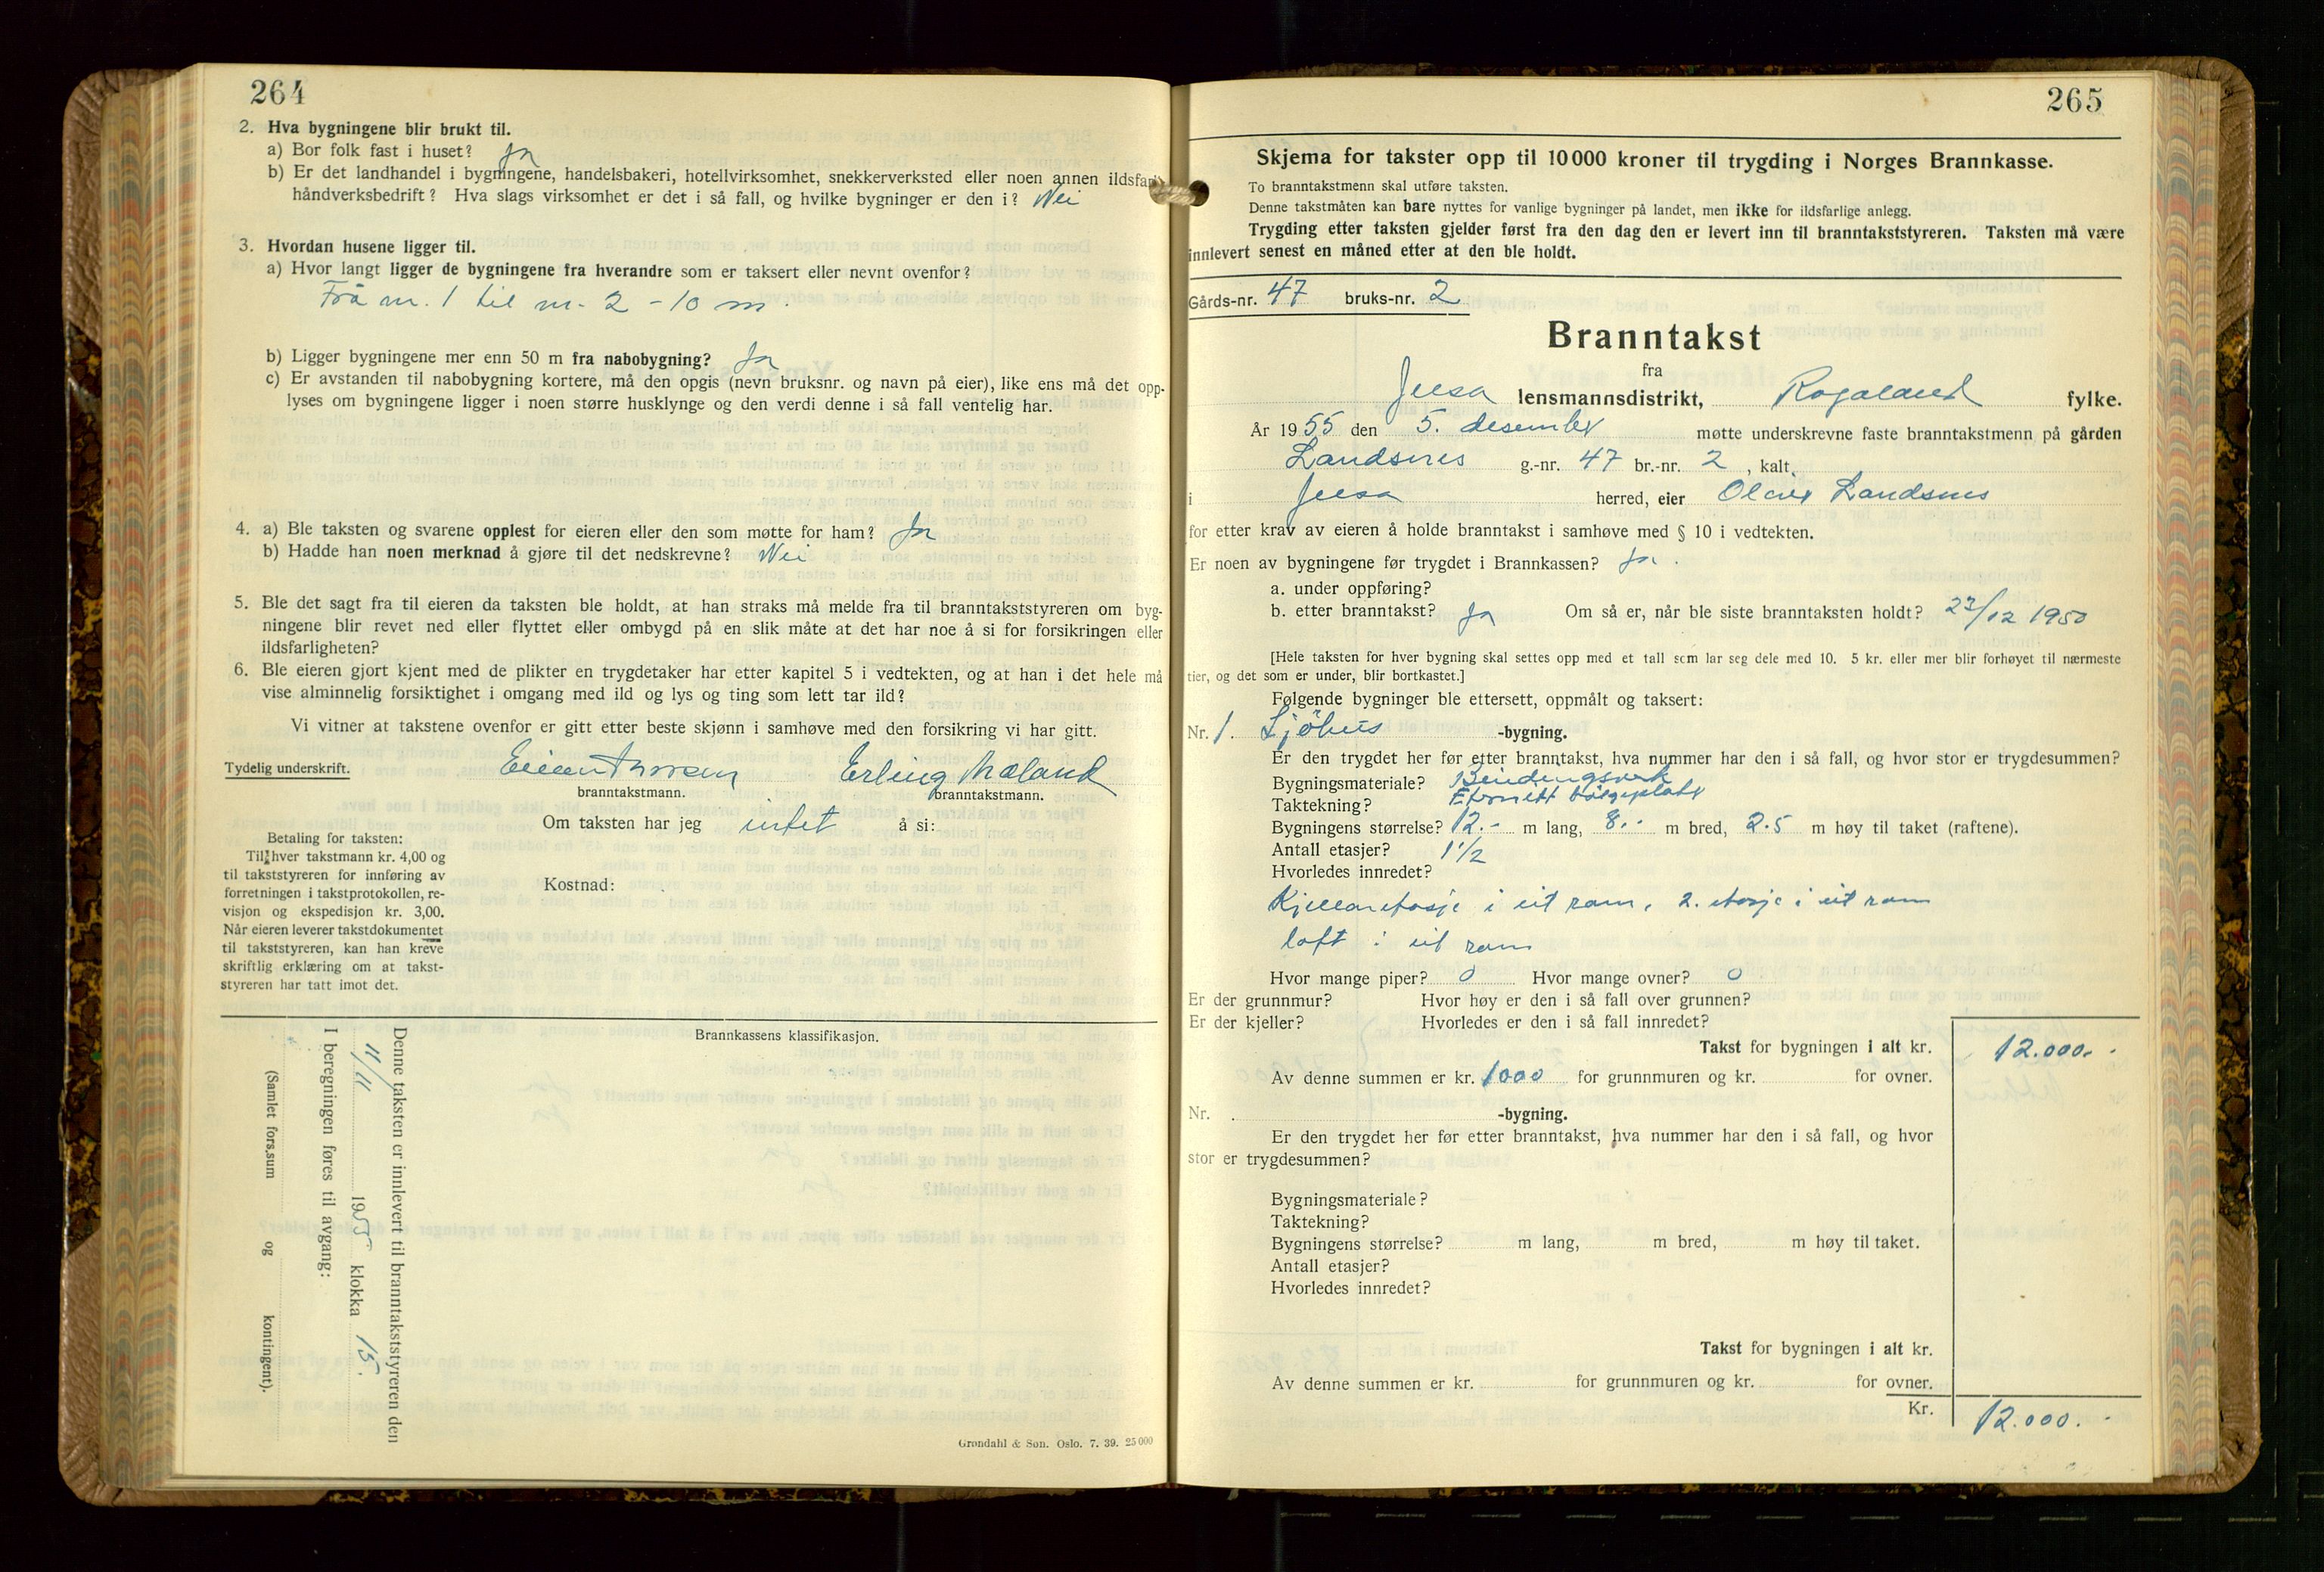 264
2. Hva bygningene blir brukt til.
a) Bor folk fast i huset? Ja
b) Er det landhandel i bygningene, handelsbakeri, hotellvirksomhet, snekkerverksted eller noen annen ildsfarlig
håndverksbedrift? Hva slags virksomhet er det i så fall, og hvilke bygninger er den i? Nei
3. Hvordan husene ligger til.
a) Hvor langt ligger de bygningene fra hverandre som er taksert eller nevnt ovenfor?
Frå nr. 1 til nr. 2 - 10 m.
b) Ligger bygningene mer enn 50 m fra nabobygning? Ja
c) Er avstanden til nabobygning kortere, må den opgis (nevn bruksnr. og navn på eier), like ens må det opp-
lyses om bygningene ligger i noen større husklynge og den verdi denne i så fall ventelig har.
4. a) Ble taksten og svarene opplest for eieren eller den som møtte for ham? Ja
b) Hadde han noen merknad å gjøre til det nedskrevne? Nei
5. Ble det sagt fra til eieren da taksten ble holdt, at han straks må melde fra til branntakststyreren om byg-
ningene blir revet ned eller flyttet eller ombygd på en slik måte at det har noe å si for forsikringen eller
ildsfarligheten?
6. Ble eieren gjort kjent med de plikter en trygdetaker har etter kapitel 5 i vedtekten, og at han i det hele må
vise alminnelig forsiktighet i omgang med ild og lys og ting som lett tar ild?
Vi vitner at takstene ovenfor er gitt etter beste skjønn i samhøve med den forsikring vi har gitt.
Tydelig underskrift. Erling Mæland
branntakstmann. branntakstmann.
Om taksten har jeg intet å si:
Betaling for taksten:
Til hver takstmann kr. 4,00 og
til takststyreren for innføring av
forretningen i takstprotokollen, re-
visjon og ekspedisjon kr. 3,00.
Når eieren leverer takstdokumentet
til takststyreren, kan han kreve
skriftlig erklæring om at takst-
styreren har tatt imot det.
Kostnad:
Brannkassens klassifikasjon.
Denne taksten er innlevert til branntakststyreren den
11/11 1955 klokka 15.
I beregningen føres til avgang:
(Samlet fors.sum og kontingent).
Grøndahl & Søn. Oslo. 7. 39. 25 000
265
Skjema for takster opp til 10 000 kroner til trygding i Norges Brannkasse.
To branntakstmenn skal utføre taksten.
Denne takstmåten kan bare nyttes for vanlige bygninger på landet, men ikke for ildsfarlige anlegg.
Trygding etter taksten gjelder først fra den dag den er levert inn til branntakststyreren. Taksten må være
innlevert senest en måned etter at den ble holdt.
Gårds-nr. 47 bruks-nr. 2
Branntakst
fra
Jelsa lensmannsdistrikt, Rogaland fylke.
År 1955 den 5. desember møtte underskrevne faste branntakstmenn på gården
Landsnes g.-nr. 47 br.-nr. 2, kalt
i Jelsa herred, eier Olav Landsnes
for etter krav av eieren å holde branntakst i samhøve med § 10 i vedtekten.
Er noen av bygningene før trygdet i Brannkassen? Ja.
a. under oppføring?
b. etter branntakst? Ja Om så er, når ble siste branntaksten holdt? 22/12 1950
[Hele taksten for hver bygning skal settes opp med et tall som lar seg dele med 10. 5 kr. eller mer blir forhøyet til nærmeste
tier, og det som er under, blir bortkastet.]
Følgende bygninger ble ettersett, oppmålt og taksert:
Nr. 1. Sjöhus -bygning.
Er den trygdet her før etter branntakst, hva nummer har den i så fall, og hvor stor er trygdesummen?
Bygningsmateriale? Bindingsverk
Taktekning? Eternitt bølgeplater
Bygningens størrelse? 12.- m lang, 8.- m bred, 2.5 m høy til taket (raftene).
Antall etasjer? 1 1/2
Hvorledes innredet?
Kjellaretasje i eit rom, 2. etasje i eit rom
loft i eit rom
Hvor mange piper? 0 Hvor mange ovner? 0
Er der grunnmur? Hvor høy er den i så fall over grunnen?
Er der kjeller? Hvorledes er den i så fall innredet?
Takst for bygningen i alt kr. 12.000.-
Av denne summen er kr. 1000 for grunnmuren og kr. for ovner.
Nr. -bygning.
Er den trygdet her før etter branntakst, hva nummer har den i så fall, og hvor
stor er trygdesummen?
Bygningsmateriale?
Taktekning?
Bygningens størrelse? m lang, m bred, m høy til taket.
Antall etasjer?
Hvorledes innredet?
Takst for bygningen i alt kr.
Av denne summen er kr. for grunnmuren og kr. for ovner.
Kr. 12.000.-